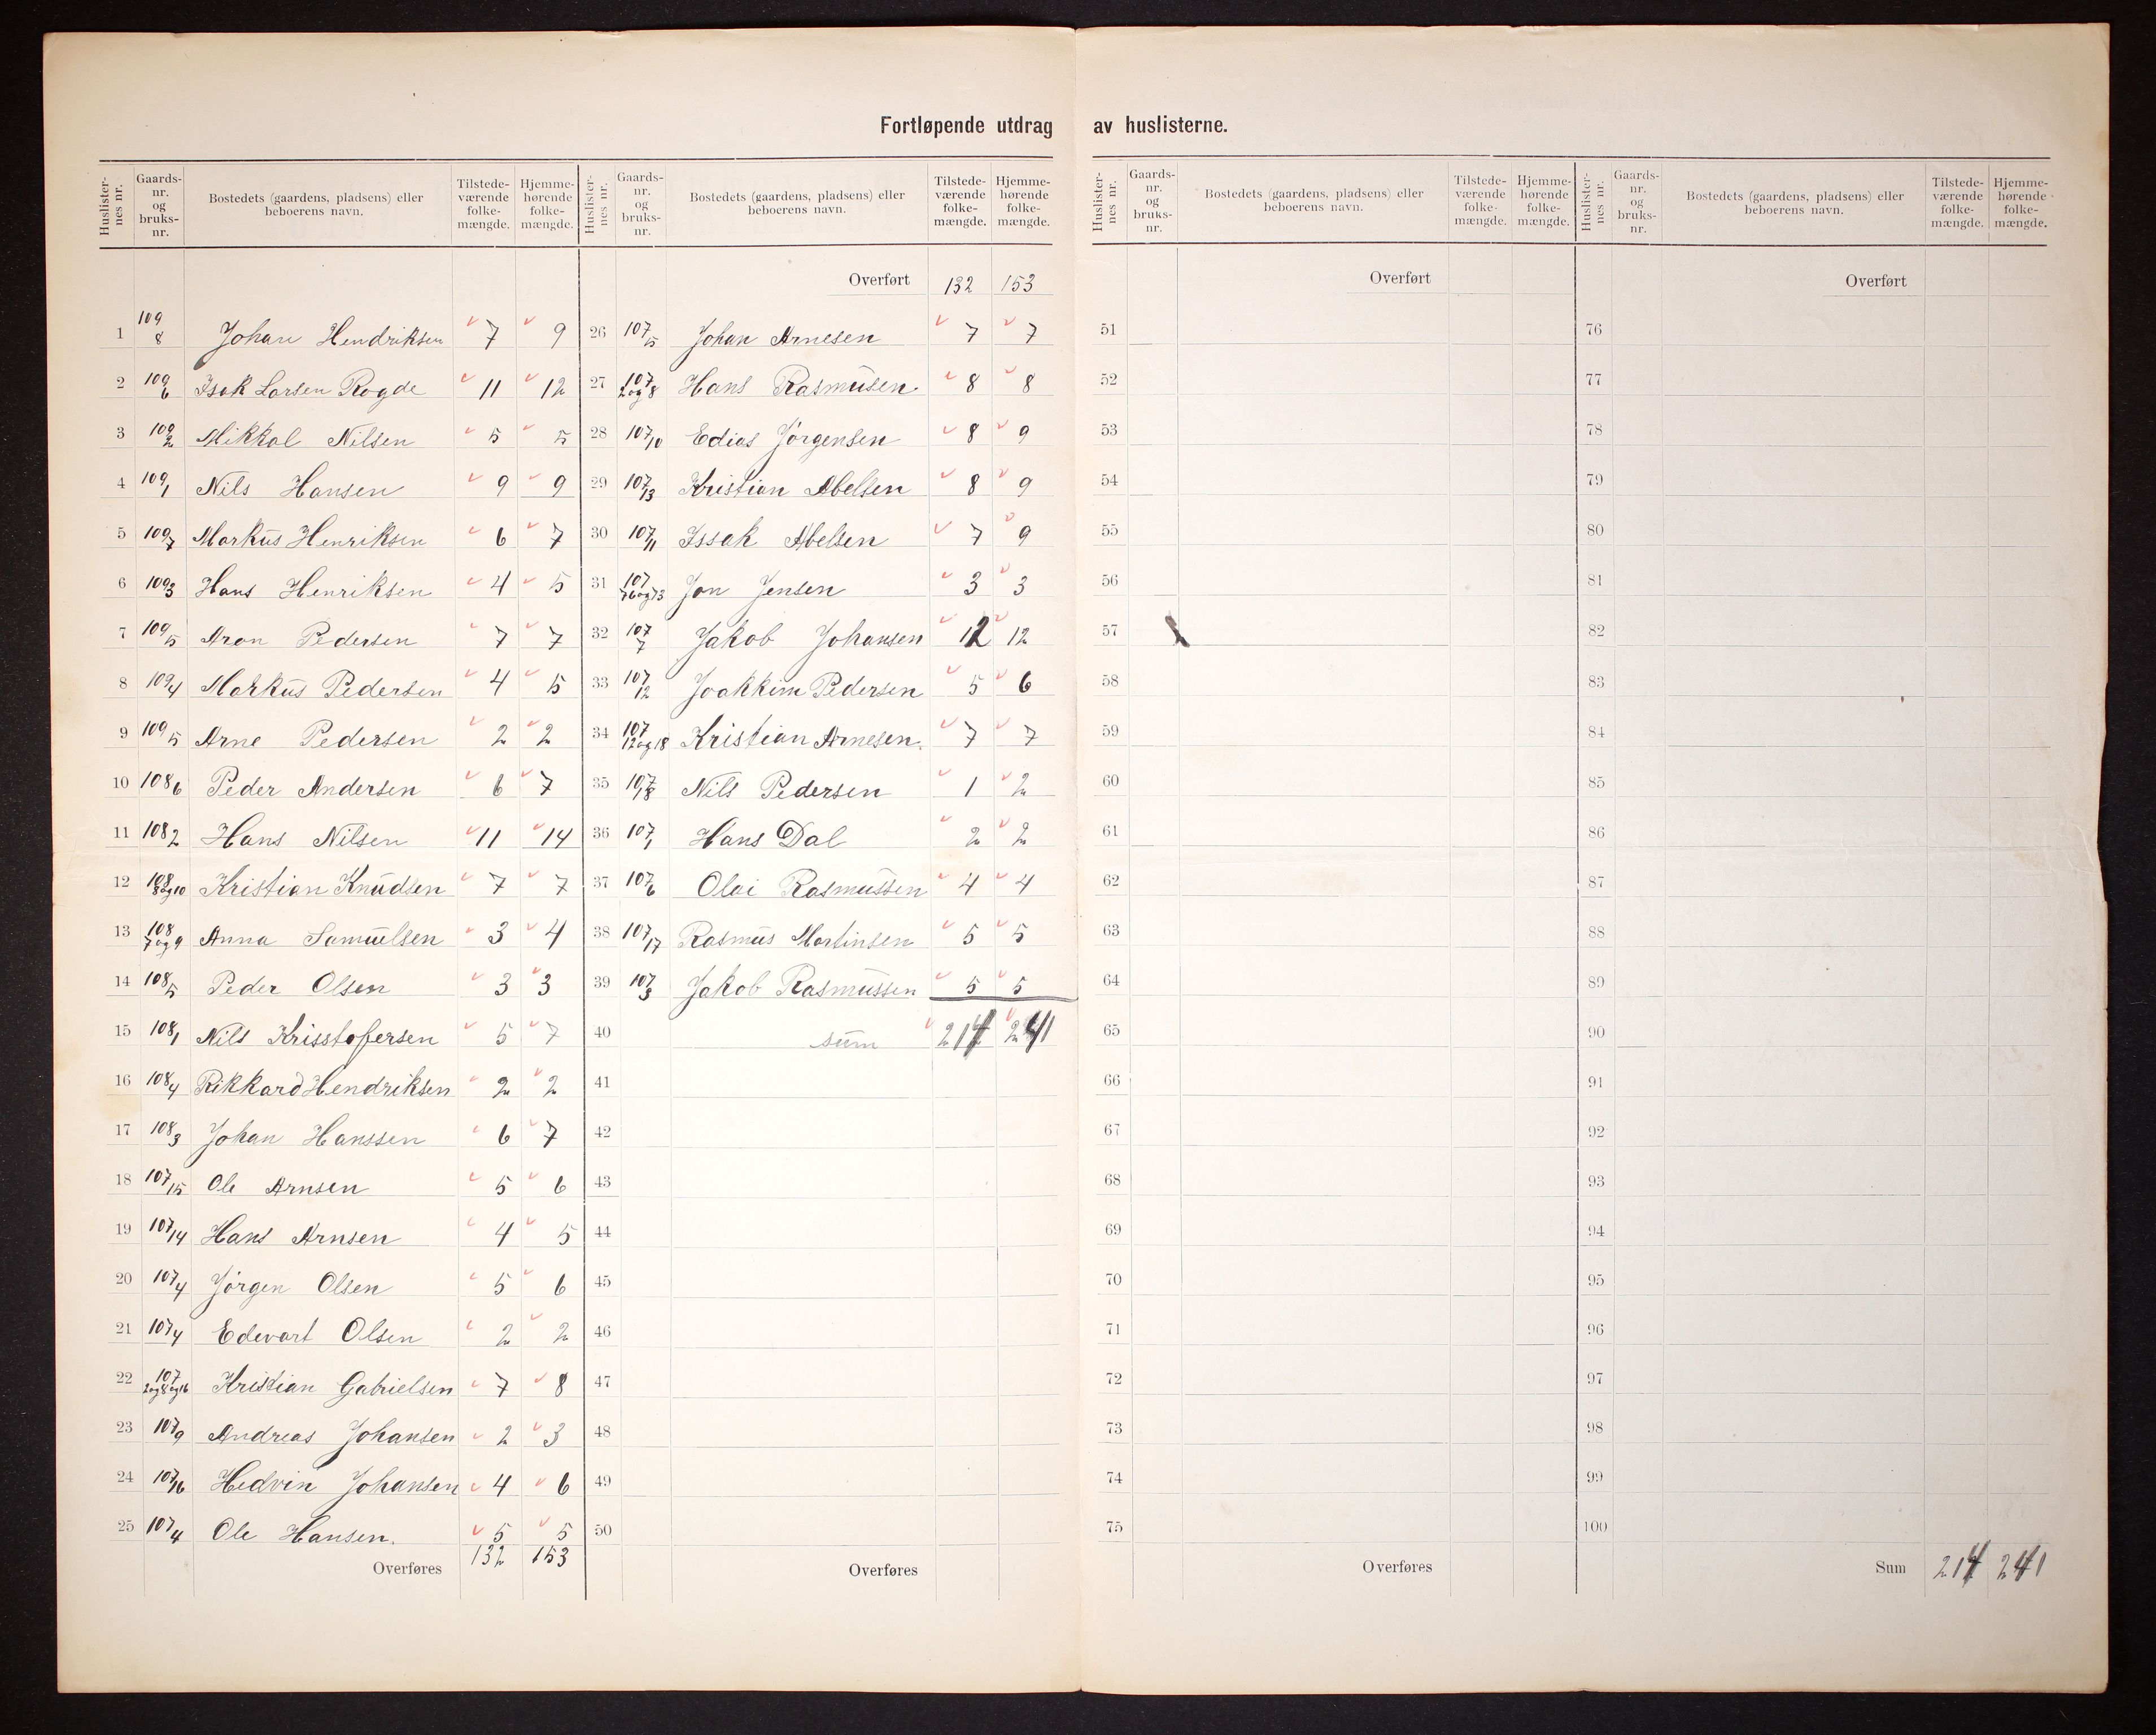 Fortløpende utdrag av huslisterne.
Huslister-nes nr. | Gaards-nr. og bruks-nr. | Bostedets (gaardens, pladsens) eller beboerens navn. | Tilstede-værende folke-mængde. | Hjemme-hørende folke-mængde.
1 109/8 Johan Hendriksen 7 9
2 109/6 Isak Larsen Rogde 11 12
3 109/2 Mikkal Nilsen 5 5
4 109/1 Nils Hansen 9 9
5 109/7 Markus Henriksen 6 7
6 109/3 Hans Henriksen 4 5
7 109/5 Aron Pedersen 7 7
8 109/4 Markus Pedersen 4 5
9 109/5 Arne Pedersen 2 2
10 108/6 Peder Andersen 6 7
11 108/2 Hans Nilsen 11 14
12 108/8og10 Kristian Knudsen 7 7
13 108/7og9 Anna Samuelsen 3 4
14 108/5 Peder Olsen 3 3
15 108/1 Nils Krisstofersen 5 7
16 108/4 Rikkard Hendriksen 2 2
17 108/3 Johan Hanssen 6 7
18 107/15 Ole Arnsen 5 6
19 107/14 Hans Arnsen 4 5
20 107/4 Jörgen Olsen 5 6
21 107/4 Edevart Olsen 2 2
22 107/2og8og16 Kristian Gabrielsen 7 8
23 107/9 Andreas Johansen 2 3
24 107/16 Hedvin Johansen 4 6
25 107/4 Ole Hansen. 5 5
Overføres 132 153
Huslister-nes nr. | Gaards-nr. og bruks-nr. | Bostedets (gaardens, pladsens) eller beboerens navn. | Tilstede-værende folke-mængde. | Hjemme-hørende folke-mængde.
Overført 132 153
26 107/5 Johan Arnesen 7 7
27 107/2og8 Hans Rasmusen 8 8
28 107/10 Edias Jörgensen 8 9
29 107/13 Kristian Abelsen 8 9
30 107/11 Issak Abelsen 7 9
31 107/ Jon Jensen 3 3
32 107/7 Jakob Johansen 12 12
33 107/12 Joakkim Pedersen 5 6
34 107/12og18 Kristian Arnesen. 7 7
35 107/18 Nils Pedersen 1 2
36 107/1 Hans Dal 2 2
37 107/6 Olai Rasmussen 4 4
38 107/17 Rasmus Martinsen 5 5
39 107/3 Jakob Rasmussen 5 5
40 sum 214 241
41
42
43
44
45
46
47
48
49
50
Overføres
Huslister-nes nr. | Gaards-nr. og bruks-nr. | Bostedets (gaardens, pladsens) eller beboerens navn. | Tilstede-værende folke-mængde. | Hjemme-hørende folke-mængde.
Overført
51
52
53
54
55
56
57
58
59
60
61
62
63
64
65
66
67
68
69
70
71
72
73
74
75
Overføres
Huslister-nes nr. | Gaards-nr. og bruks-nr. | Bostedets (gaardens, pladsens) eller beboerens navn. | Tilstede-værende folke-mængde. | Hjemme-hørende folke-mængde.
Overført
76
77
78
79
80
81
82
83
84
85
86
87
88
89
90
91
92
93
94
95
96
97
98
99
100
Sum 214 241